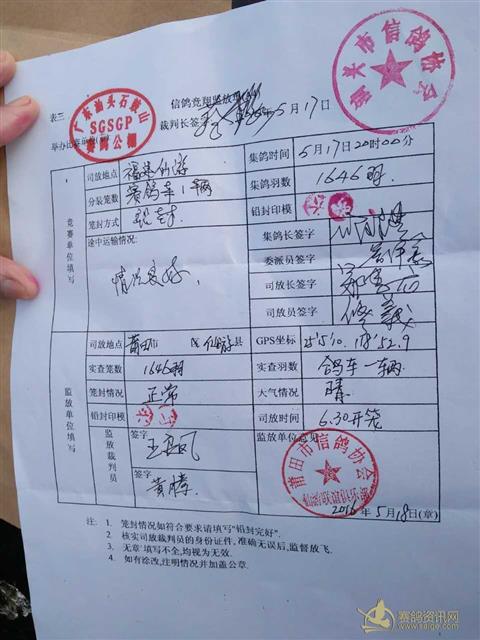 表三
信鸽竞翔监放
广东汕头石敢山
SGSGP
赛鸽公棚
韶关市信鸽协会
裁判长签 5月17日
举办比赛单位
竞赛单位填写
司放地点 福建仙游 集鸽时间 5月17日20时00分
分装笼数 赛鸽车1辆 集鸽羽数 1646羽
笼封方式 铅封 铅封印模
途中运输情况: 集鸽长签字
情况良好. 委派员签字
司放长签字
司放员签字
监放单位填写
司放地点 莆田市 区仙游县 GPS坐标
实查笼数 1646羽 实查羽数 鸽车一辆
笼封情况 正常 大气情况 晴
铅封印模 司放时间 6.30开笼
监放裁判员 签字 监放单位意见
签字 黄腾
莆田市信鸽协会
2016年5月18日(章)
注: 1. 笼封情况如符合要求请填写"铅封完好".
2. 核实司放裁判员的身份证件,准确无误后,监督放飞.
3. 无章`填写不全,均视为无效.
4. 如有涂改,注明情况并加盖公章.
赛鸽资讯网
www.saige.com